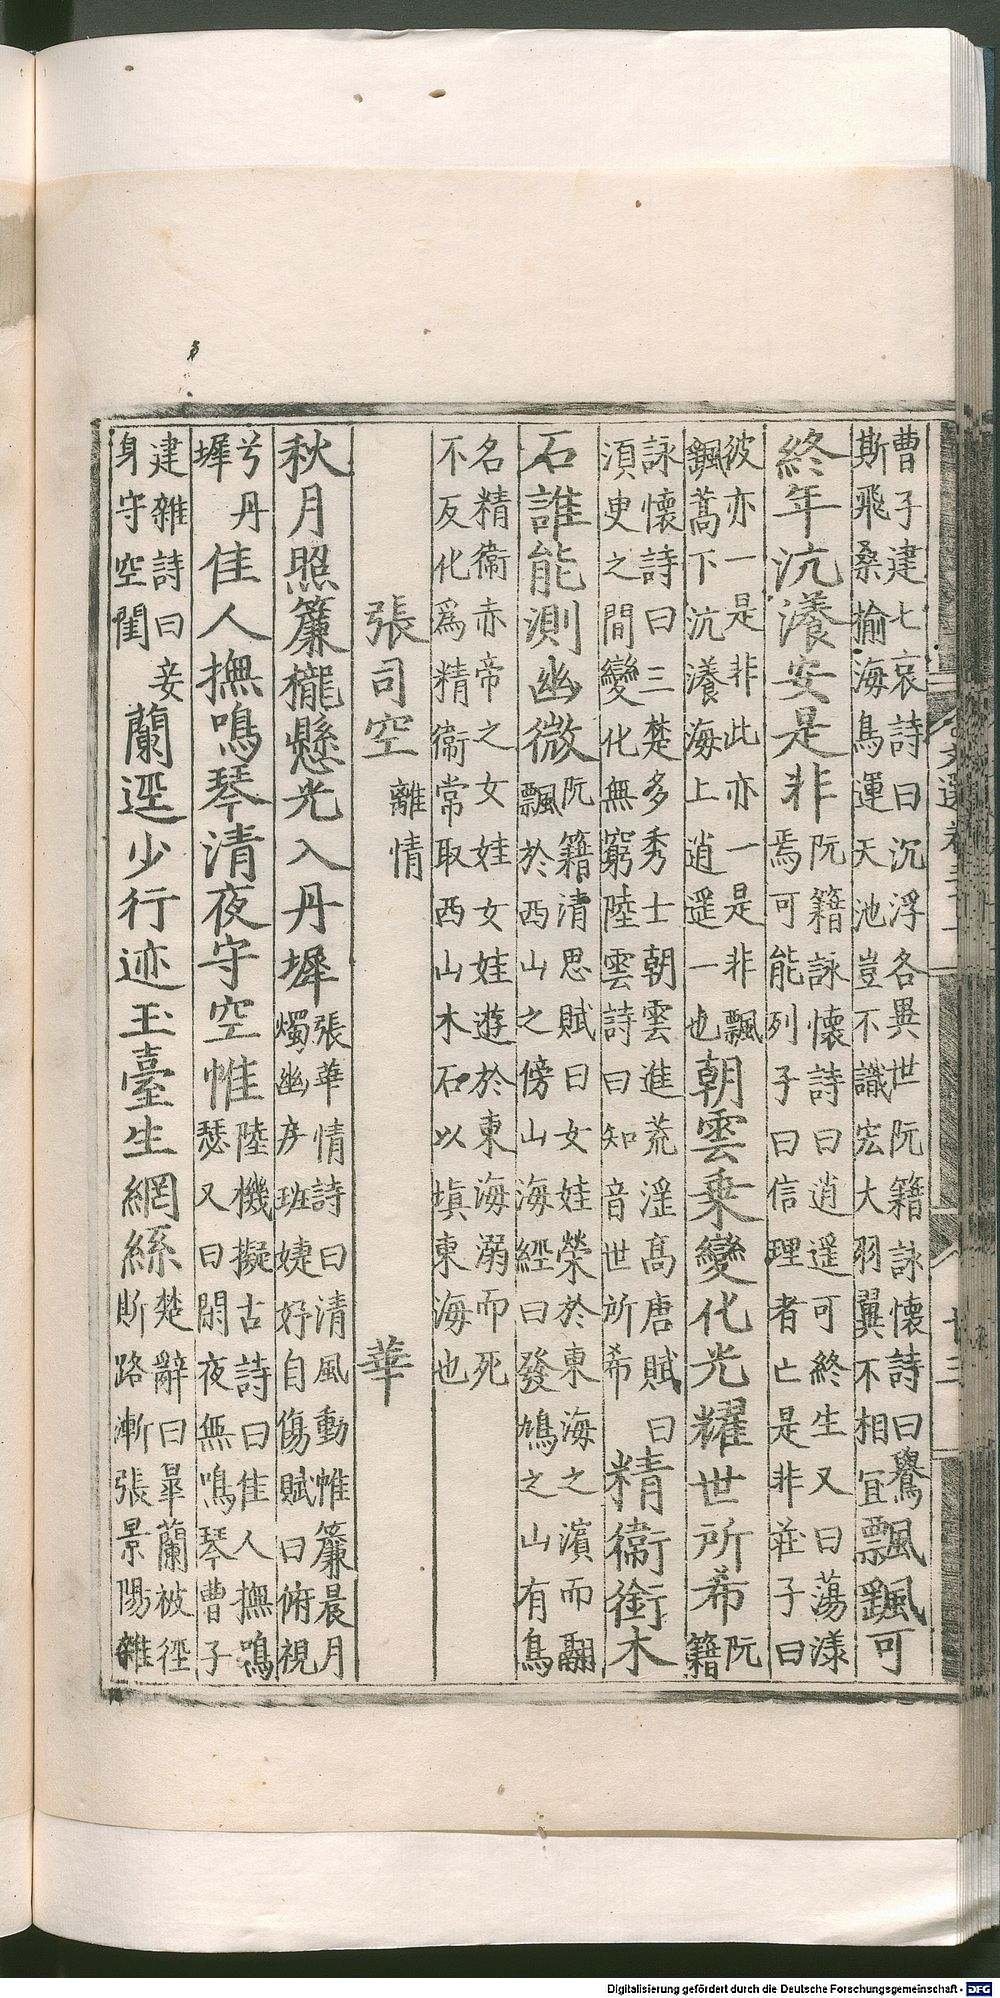 文選卷三十一 廿三
曹子建七哀詩曰沉浮各異世阮籍詠懷詩曰鸒斯飛桑揄海鳥運天池豈不識宏大羽翼不相宜飄颻可
終年沆瀁安是非阮籍詠懷詩曰逍遥可終生又曰蕩漾焉可能列子曰信理者亡是非莊子曰
彼亦一是非此亦一是非飄颻蒿下沆瀁海上逍遥一也朝雲乗變化光耀世所希阮籍
詠懷詩曰三楚多秀士朝雲進荒淫高唐賦曰湏臾之間變化無窮陸雲詩曰知音世所希精衛銜木
石誰能測幽微阮籍清思賦曰女娃榮於東海之濵而翩飄於西山之傍山海經曰發鳩之山有鳥
名精衛赤帝之女娃女娃遊於東海溺而死不反化爲精衛常取西山木石以塡東海也
張司空離情 華
秋月照簾櫳懸光入丹墀張華情詩曰清風動帷簾晨月燭幽房班婕妤自傷賦曰俯視
兮丹墀佳人撫鳴琴清夜守空帷陸機擬古詩曰佳人撫鳴瑟又曰閑夜無鳴琴曹子
建雜詩曰妾身守空閨蘭逕少行迹玉臺生網絲楚辭曰皐蘭被徑斯路漸張景陽雜
Digitalisierung gefördert durch die Deutsche Forschungsgemeinschaft - DFG